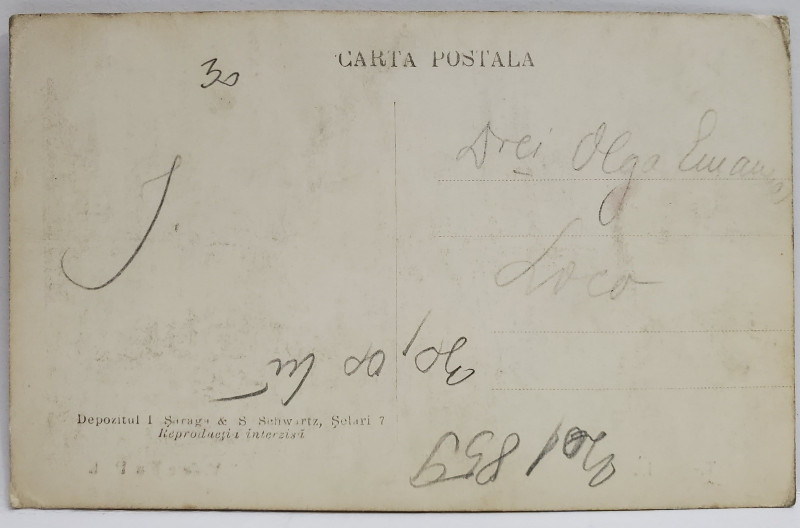 CARTA POSTALA
30
Drei Olga
J.
Loco
30,00 lei
Depozitul I Șaraga & S Schwartz, Șelari 7
Reproducția interzisă
859